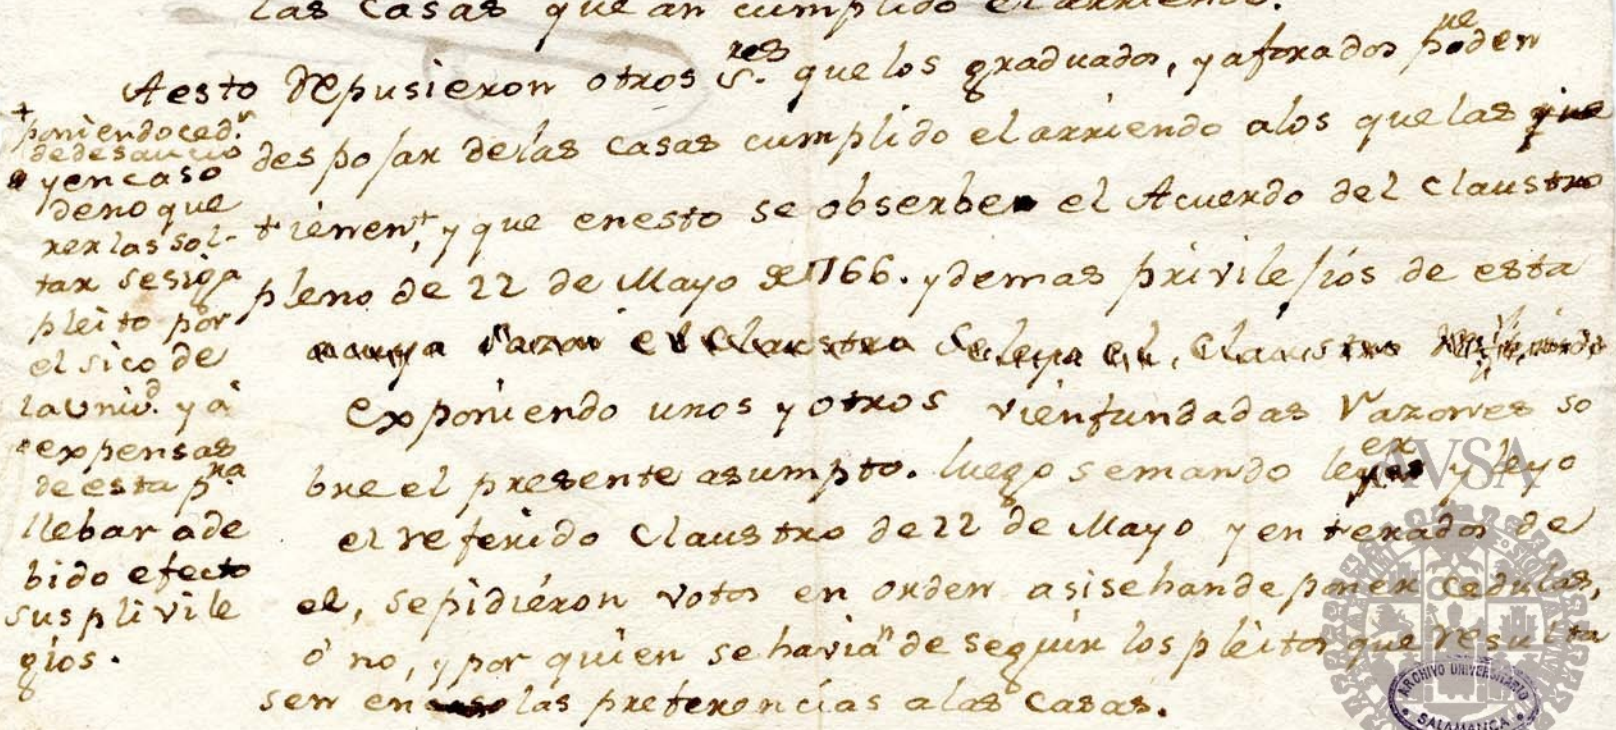 las casas que an cumplido el arriendo.
A esto Repusieron otros S.res que los graduados, y aforados pueden
despojar de las casas cumplido el arriendo a los que las que
tienen+, y que en esto se obserbe el Acuerdo del Claustro
pleno de 22 de Mayo de 1766. y demas privilejios de esta
el Claustro el Claustro
exponiendo unos y otros vien fundadas razones so
bre el presente asumpto. luego se mando leer y leyo
el referido Claustro de 22 de Mayo y enterados de
el, se pidieron votos en orden a si se han de poner cedulas,
ó no, y por quien se havian de seguir los pleitos que resulta
sen en las preferencias a las casas.
+
poniendo ced.n
de desaucio
y en caso
de no que
rer las sol-
tar se siga
pleito por
el sico de
la Univ.d y á
expensas
de esta p.ra
llebar a de
bido efecto
sus plivile
gios.
AVSA
ARCHIVO UNIVERSITARIO
SALAMANCA